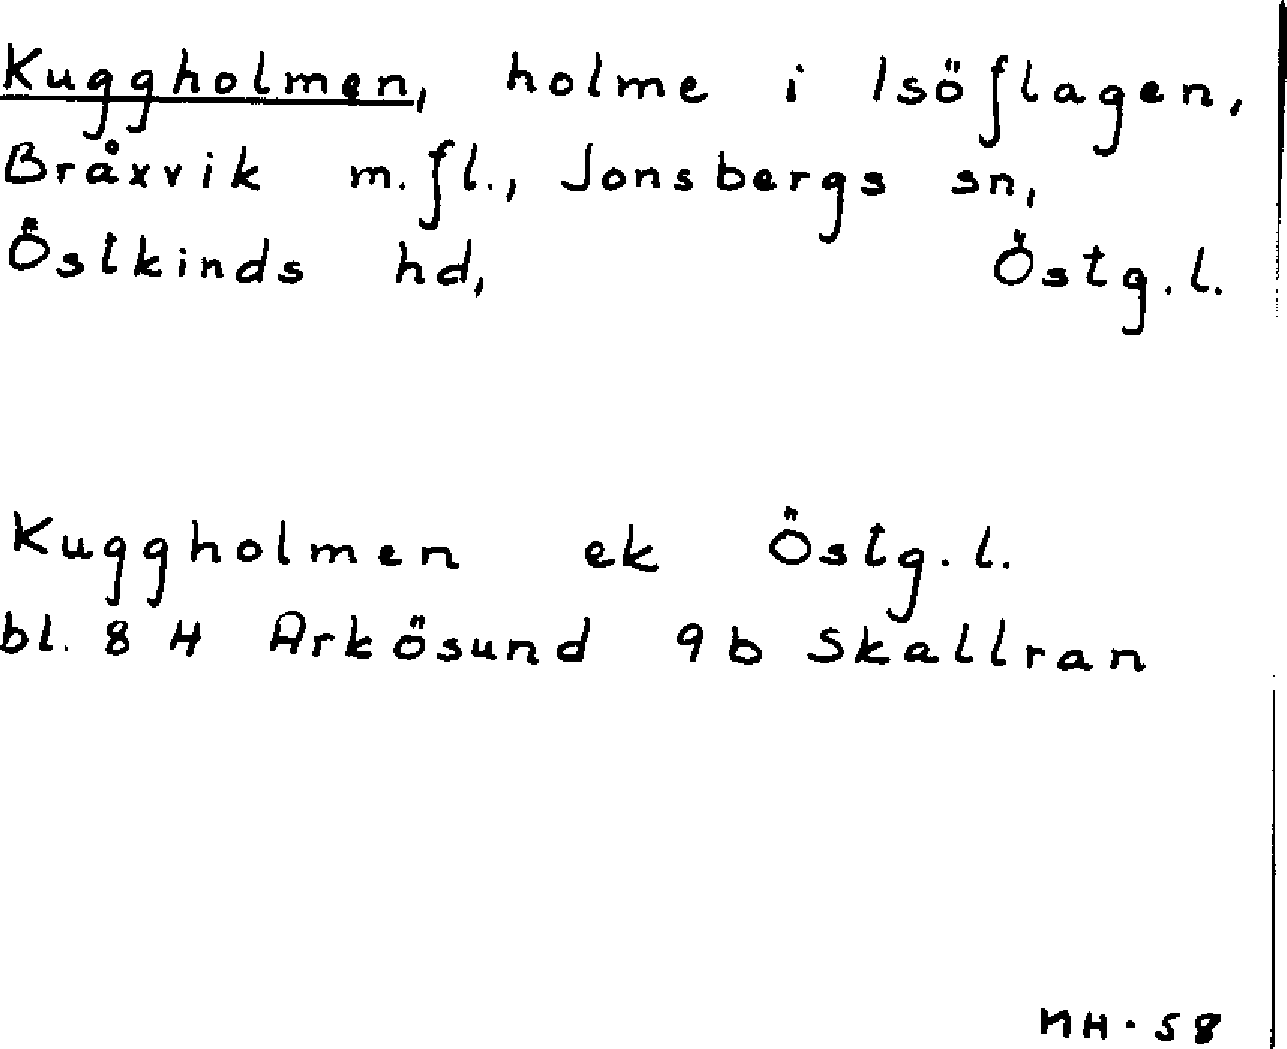 Kuggholmen, holme i Isöflagen,
Bråxvik m.fl., Jonsbergs sn,
Östkinds hd, Östg.l.
Kuggholmen ek Östg.l.
bl. 8 H Arkösund 9b Skallran
NH·58